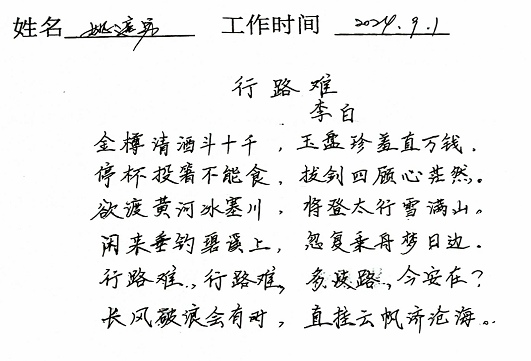 姓名 姚 工作时间 2024.9.1
行路难
李白
金樽清酒斗十千，玉盘珍羞直万钱.
停杯投箸不能食，拔剑四顾心茫然。
欲渡黄河冰塞川，将登太行雪满山。
闲来垂钓碧溪上，忽复乘舟梦日边.
行路难.，行路难，多歧路，今安在？
长风破浪会有时，直挂云帆济沧海。